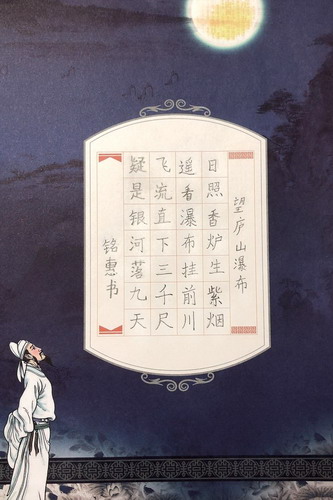 望庐山瀑布
日照香炉生紫烟
遥看瀑布挂前川
飞流直下三千尺
疑是银河落九天
铭惠书